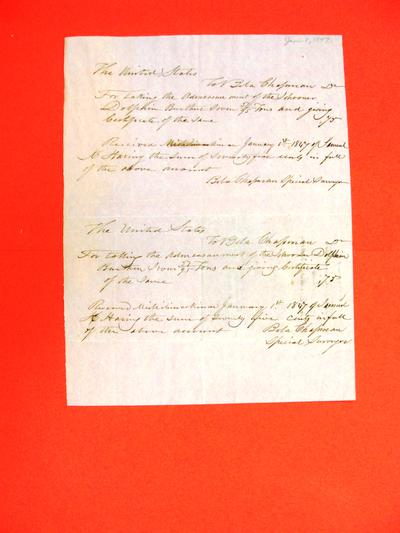 Jan 1, 1847.
The United States
To Bela Chapman Dr
For taking the Admeasurement of the Schooner
Dolphin Burthen Seven Tons and giving
Certificate of the Same .75
Received Michilimackinac January 1st 1847 of Samuel
K Haring the Sum of Seventy five cents in full
of the above account
Bela Chapman Special Surveyor
The United States
To Bela Chapman Dr
For taking the Admeasurement of the Schooner Dolphin
Burthen Seven Tons and giving Certificate
of the Same .75
Received Michilimackinac January 1st 1847 of Samuel
K Haring the Sum of Seventy five cents in full
of the above account Bela Chapman
Special Surveyor